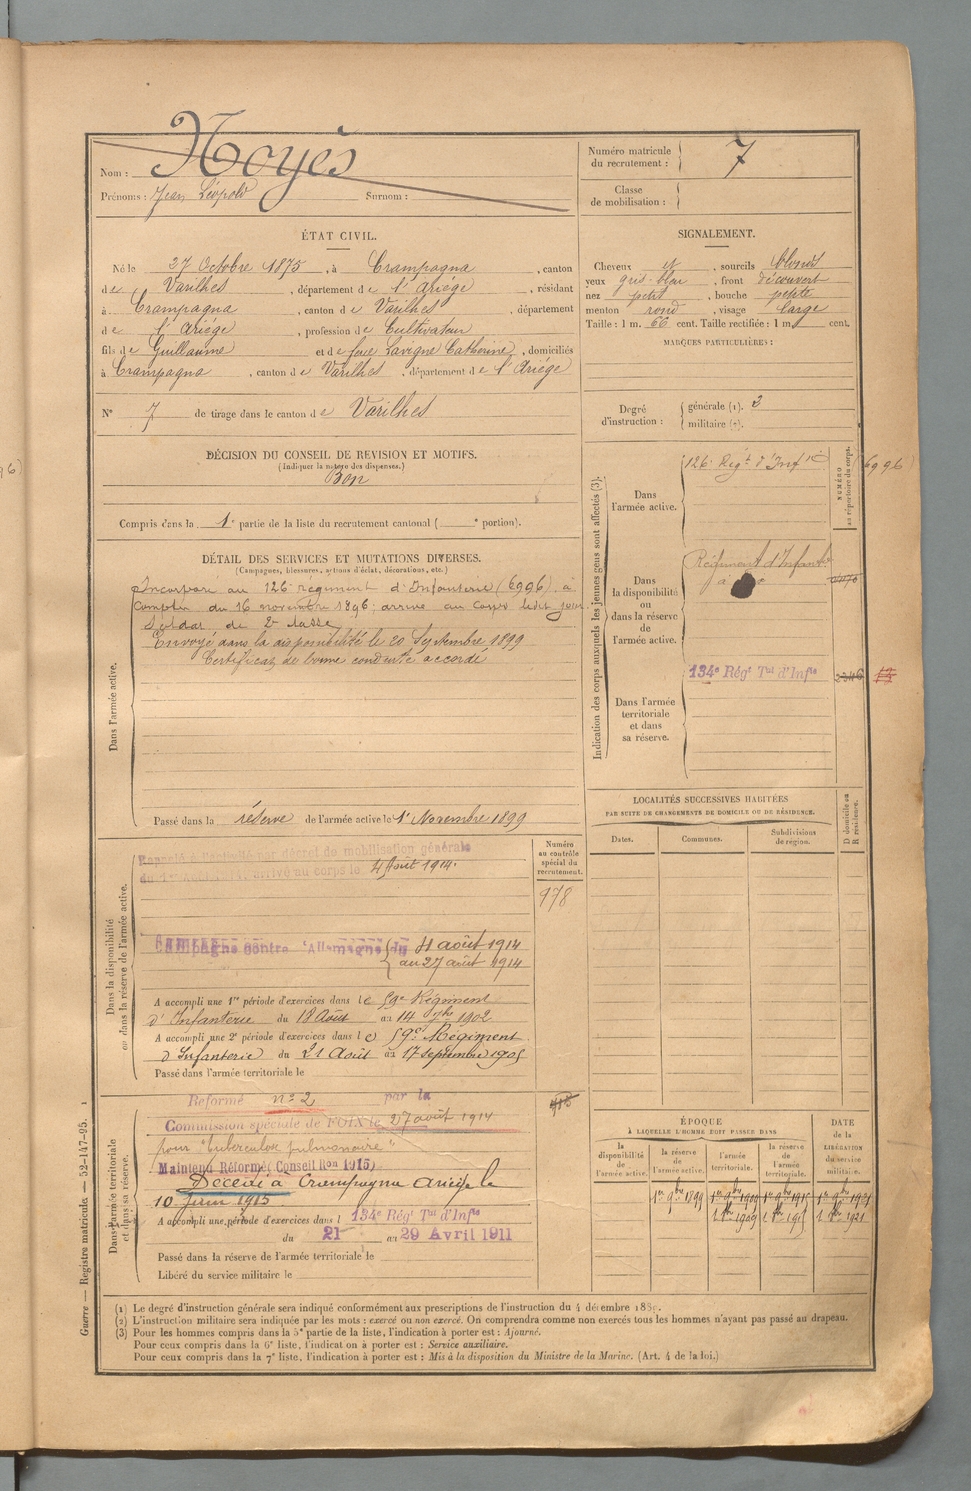 Nom : Noyès
Prénoms : Jean Léopold Surnom :
Numéro matricule du recrutement : 7
Classe de mobilisation :
ÉTAT CIVIL.
Né le 27 Octobre 1875, à Crampagna, canton
de Varilhes, département de l'Ariège, résidant
à Crampagna, canton de Varilhes, département
de l'Ariège, profession de Cultivateur
fils de Guillaume et de feue Lavigne Catherine, domiciliés
à Crampagna, canton de Varilhes, département de l'Ariège
N° 7 de tirage dans le canton de Varilhes
SIGNALEMENT.
Cheveux et, sourcils blonds
yeux gris-bleu, front découvert
nez petit, bouche petite
menton rond, visage large
Taille : 1 m. 66 cent. Taille rectifiée : 1 m. cent.
MARQUES PARTICULIÈRES :
Degré d'instruction : générale (1). 3
militaire (2).
DÉCISION DU CONSEIL DE REVISION ET MOTIFS.
(Indiquer la nature des dispenses.)
Bon
Compris dans la 1e partie de la liste du recrutement cantonal ( e portion).
DÉTAIL DES SERVICES ET MUTATIONS DIVERSES.
(Campagnes, blessures, actions d'éclat, décorations, etc.)
Dans l'armée active.
Incorporé au 126e régiment d'Infanterie (6996) à
compter du 16 novembre 1896; arrivé au corps ledit jour
Soldat de 2e classe
Envoyé dans la disponibilité le 20 Septembre 1899
Certificat de bonne conduite accordé
Passé dans la réserve de l'armée active le 1er Novembre 1899
Indication des corps auxquels les jeunes gens sont affectés (3).
NUMÉRO au répertoire du corps.
Dans l'armée active.
126e Régt d'Infie (6996)
Dans la disponibilité ou dans la réserve de l'armée active.
Régiment d'Infanterie
à
Dans l'armée territoriale et dans sa réserve.
134e Régt Tal d'Infie
LOCALITÉS SUCCESSIVES HABITÉES
PAR SUITE DE CHANGEMENTS DE DOMICILE OU DE RÉSIDENCE.
Dates. Communes. Subdivisions de région. D domicile ou R résidence.
Dans la disponibilité ou dans la réserve de l'armée active.
Numéro au contrôle spécial du recrutement.
978
Rappelé à l'activité par décret de mobilisation générale
du 1er Août 1914. Arrivé au corps le 4 Août 1914.
Campagne contre l'Allemagne du 4 août 1914
au 27 août 1914
A accompli une 1re période d'exercices dans le 59e Régiment
d'Infanterie du 18 Août au 14 7bre 1902
A accompli une 2e période d'exercices dans le 59e Régiment
d'Infanterie du 21 Août au 17 septembre 1905
Passé dans l'armée territoriale le
Dans l'armée territoriale et dans sa réserve.
Réformé n° 2 par la
Commission spéciale de FOIX le 27 août 1914
pour "tuberculose pulmonaire"
Maintenu Réformé (Conseil Ron 1915)
Décédé à Crampagna Ariège le
10 Juin 1915
A accompli une période d'exercices dans l 134e Régt Tal d'Infie
du 21 au 29 Avril 1911
Passé dans la réserve de l'armée territoriale le
Libéré du service militaire le
ÉPOQUE
À LAQUELLE L'HOMME DOIT PASSER DANS
la disponibilité de l'armée active. la réserve de l'armée active. l'armée territoriale. la réserve de l'armée territoriale.
DATE de la LIBÉRATION du service militaire.
1er 9bre 1899 1er 9bre 1909 1er 9bre 1915 1er 9bre 1921
1 1909 1 1915 1 1921
(1) Le degré d'instruction générale sera indiqué conformément aux prescriptions de l'instruction du 4 décembre 1889.
(2) L'instruction militaire sera indiquée par les mots : exercé ou non exercé. On comprendra comme non exercés tous les hommes n'ayant pas passé au drapeau.
(3) Pour les hommes compris dans la 5e partie de la liste, l'indication à porter est : Ajourné.
Pour ceux compris dans la 6e liste, l'indication à porter est : Service auxiliaire.
Pour ceux compris dans la 7e liste, l'indication à porter est : Mis à la disposition du Ministre de la Marine. (Art. 4 de la loi.)
Guerre — Registre matricule. — 52-147-95. 1